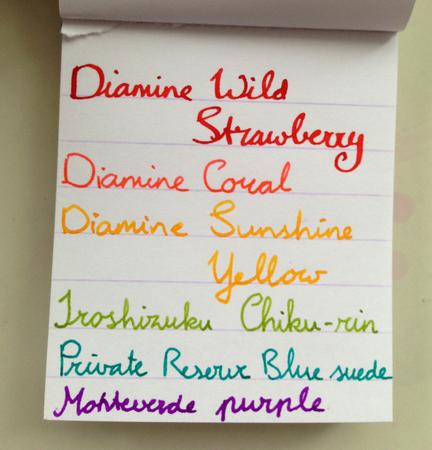 Diamine Wild
Strawberry
Diamine Coral
Diamine Sunshine
Yellow
Iroshizuku Chiku-rin
Private Reserve Blue suede
Monteverde purple